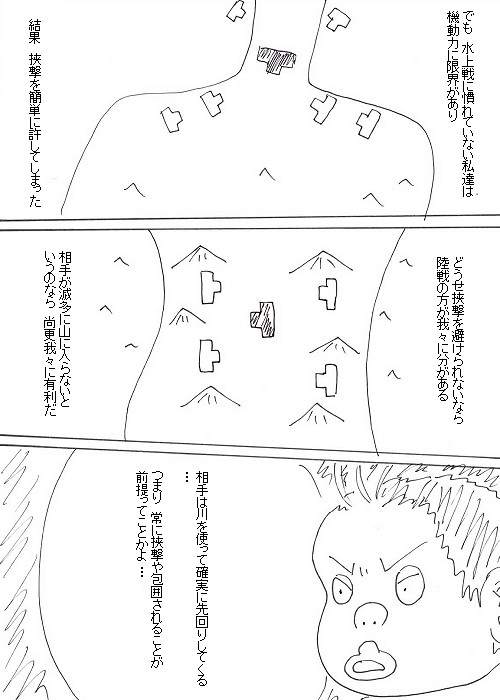 でも 水上戦に慣れていない私達は
機動力に限界があり
結果 挟撃を簡単に許してしまった
どうせ挟撃を避けられないなら
陸戦の方が我々に分がある
相手が滅多に山に入らないと
いうのなら 尚更我々に有利だ
相手は川を使って確実に先回りしてくる
…
つまり 常に挟撃や包囲されることが
前提ってことかよ…